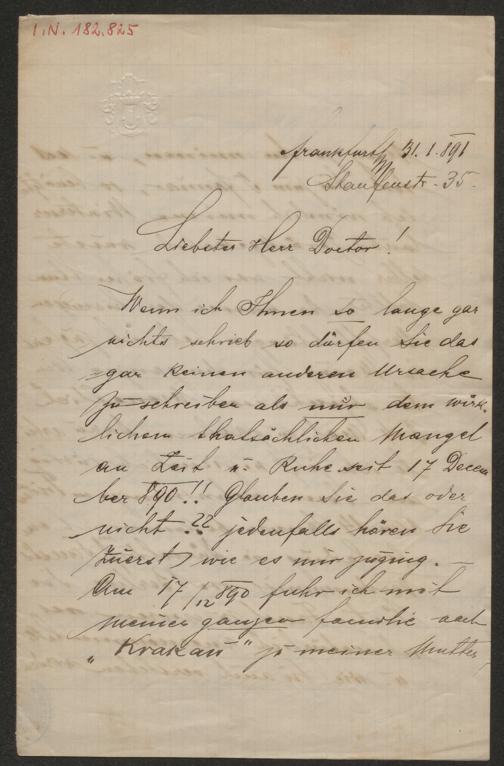 I.N. 182.825
Frankfurt a/M 31.1.891
Staufenstr. 35.
Liebster Herr Doctor!
Wenn ich Ihnen so lange gar
nichts schrieb so dürfen Sie das
gar keinen anderen Ursache
zu schreiben als nur dem wirk-
lichen thatsächlichen Mangel
an Zeit u. Ruhe seit 17 Decem
ber 890!! Glauben Sie das oder
nicht?? jedenfalls hören Sie
zuerst wie es mir zuging. —
Am 17/12 890 fuhr ich mit
meiner ganzen Familie nach
„Krakau" zu meiner Mutter,